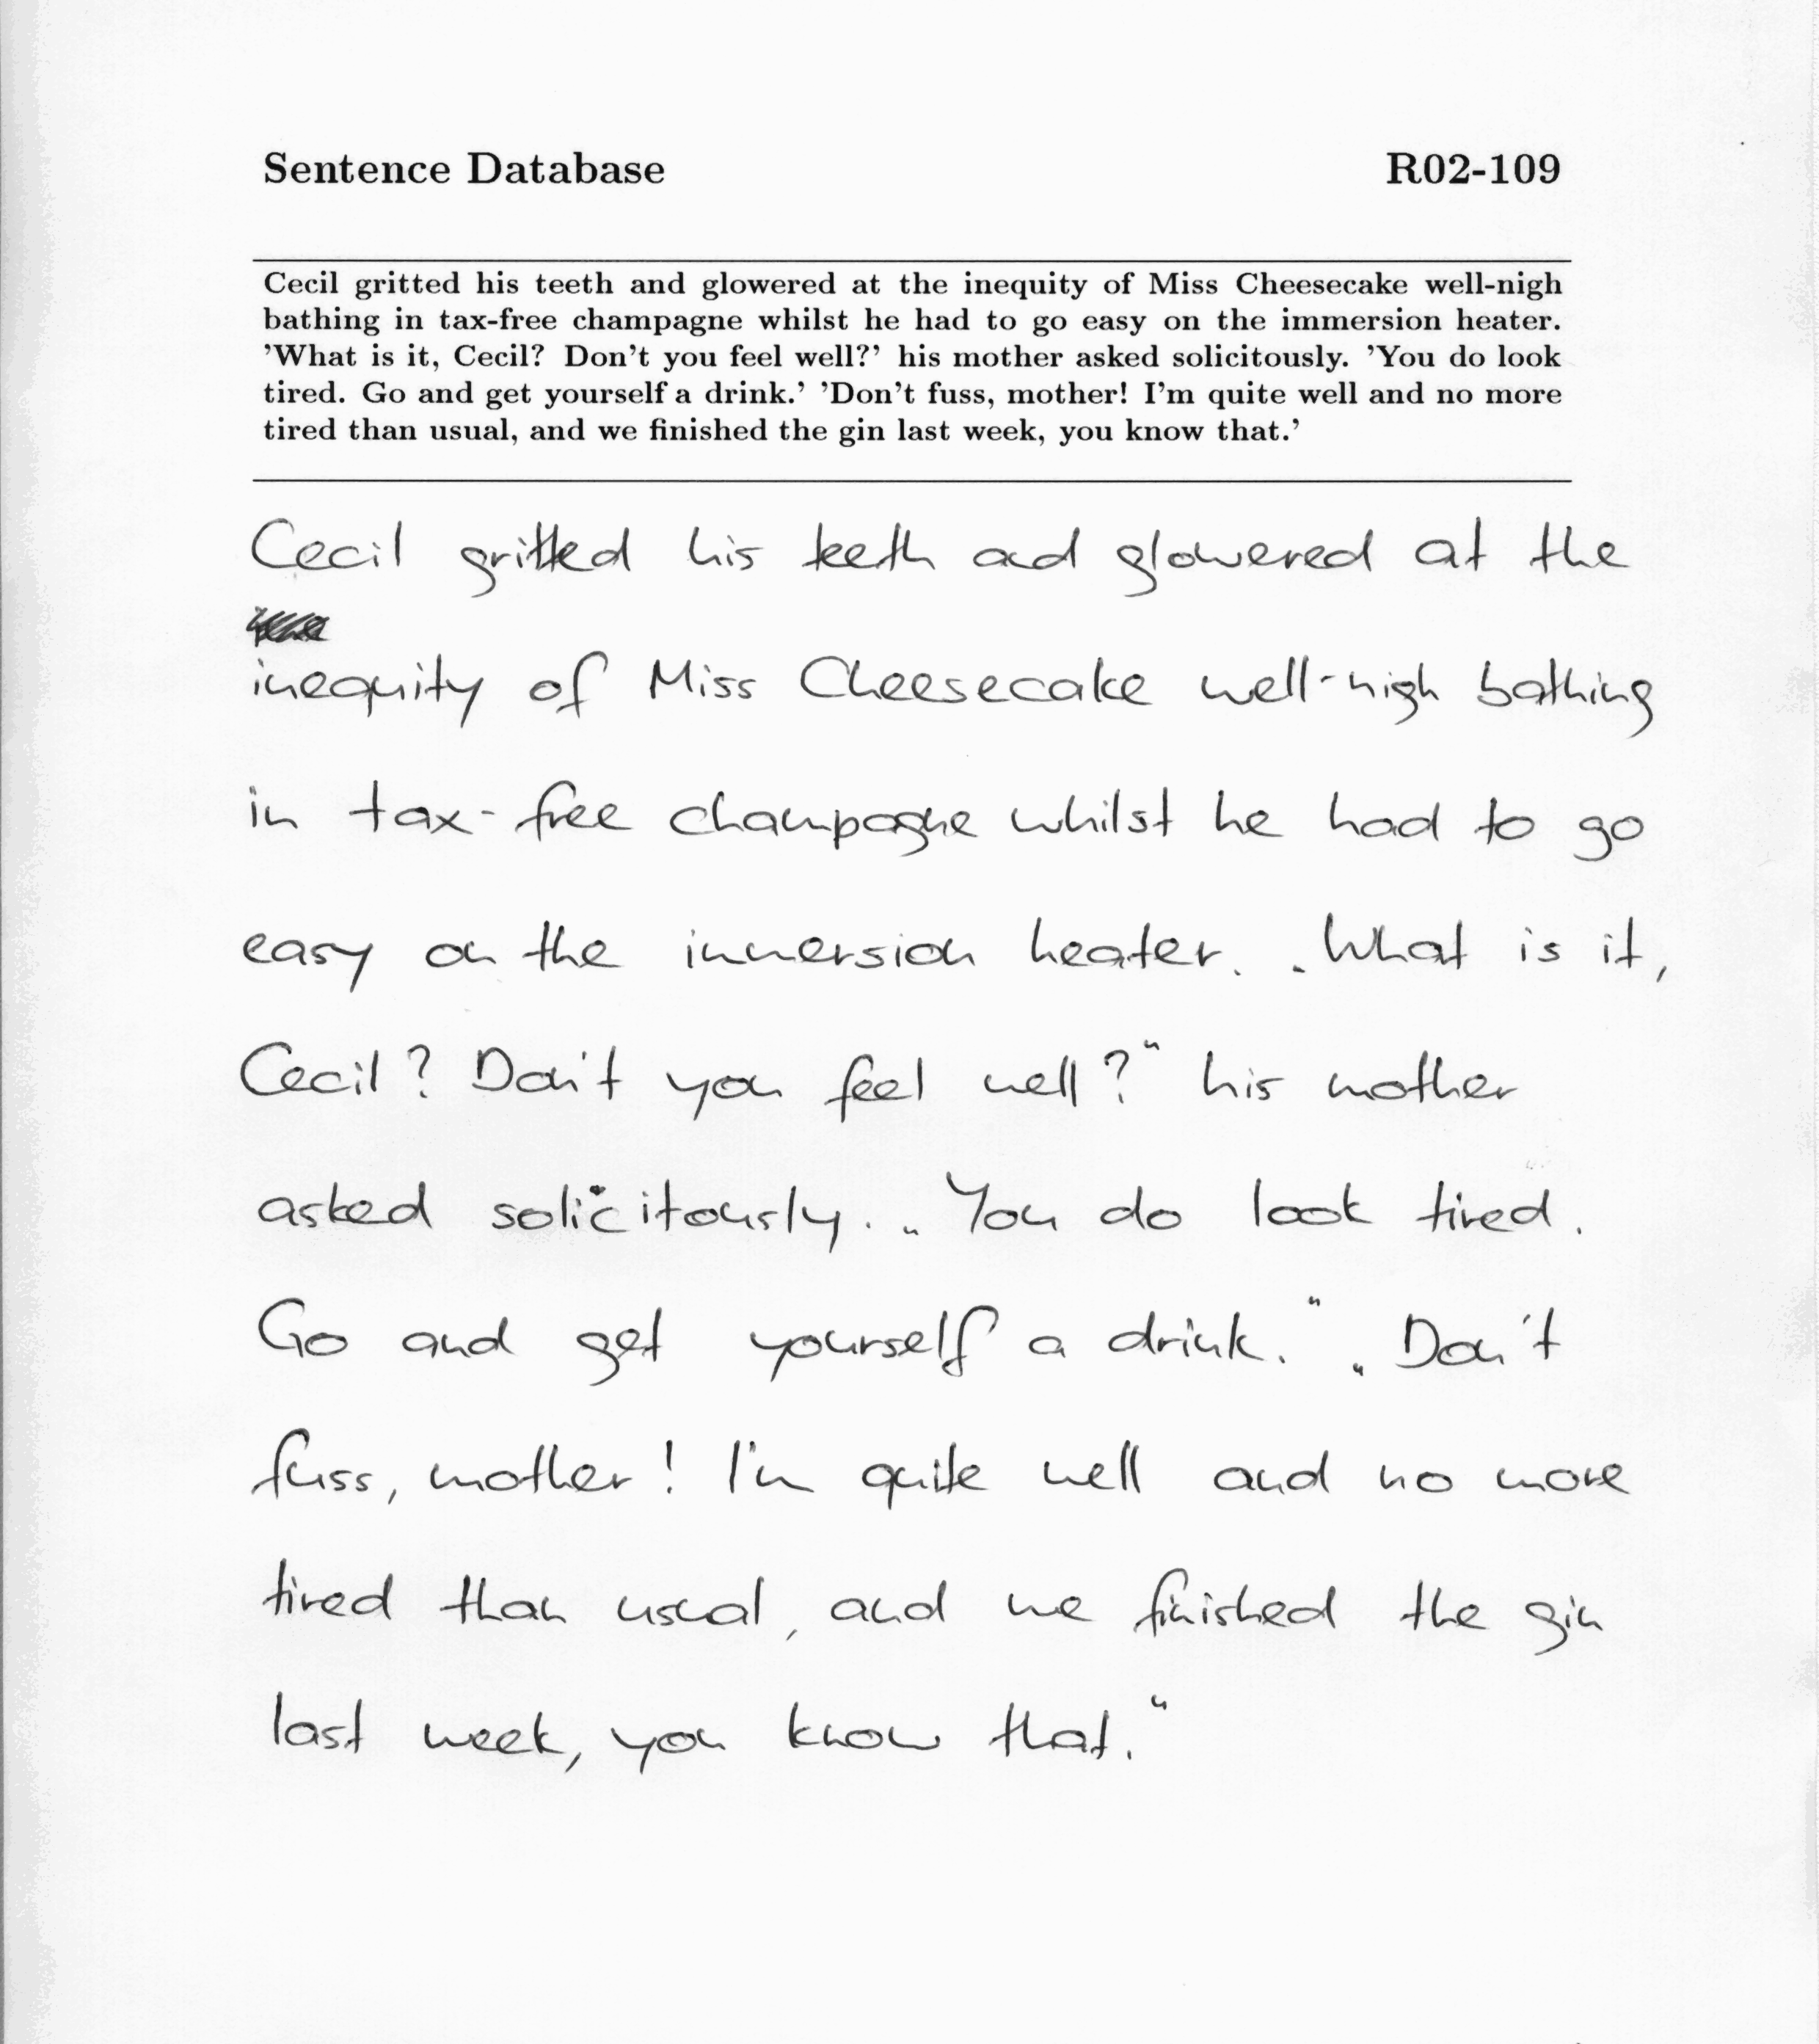 Sentence Database R02-109
Cecil gritted his teeth and glowered at the inequity of Miss Cheesecake well-nigh
bathing in tax-free champagne whilst he had to go easy on the immersion heater.
'What is it, Cecil? Don't you feel well?' his mother asked solicitously. 'You do look
tired. Go and get yourself a drink.' 'Don't fuss, mother! I'm quite well and no more
tired than usual, and we finished the gin last week, you know that.'
Cecil gritted his teeth and glowered at the
inequity of Miss Cheesecake well-nigh bathing
in tax-free champagne whilst he had to go
easy on the immersion heater. „What is it,
Cecil? Don't you feel well?" his mother
asked solicitously. „You do look tired.
Go and get yourself a drink." „Don't
fuss, mother! I'm quite well and no more
tired than usual, and we finished the gin
last week, you know that."